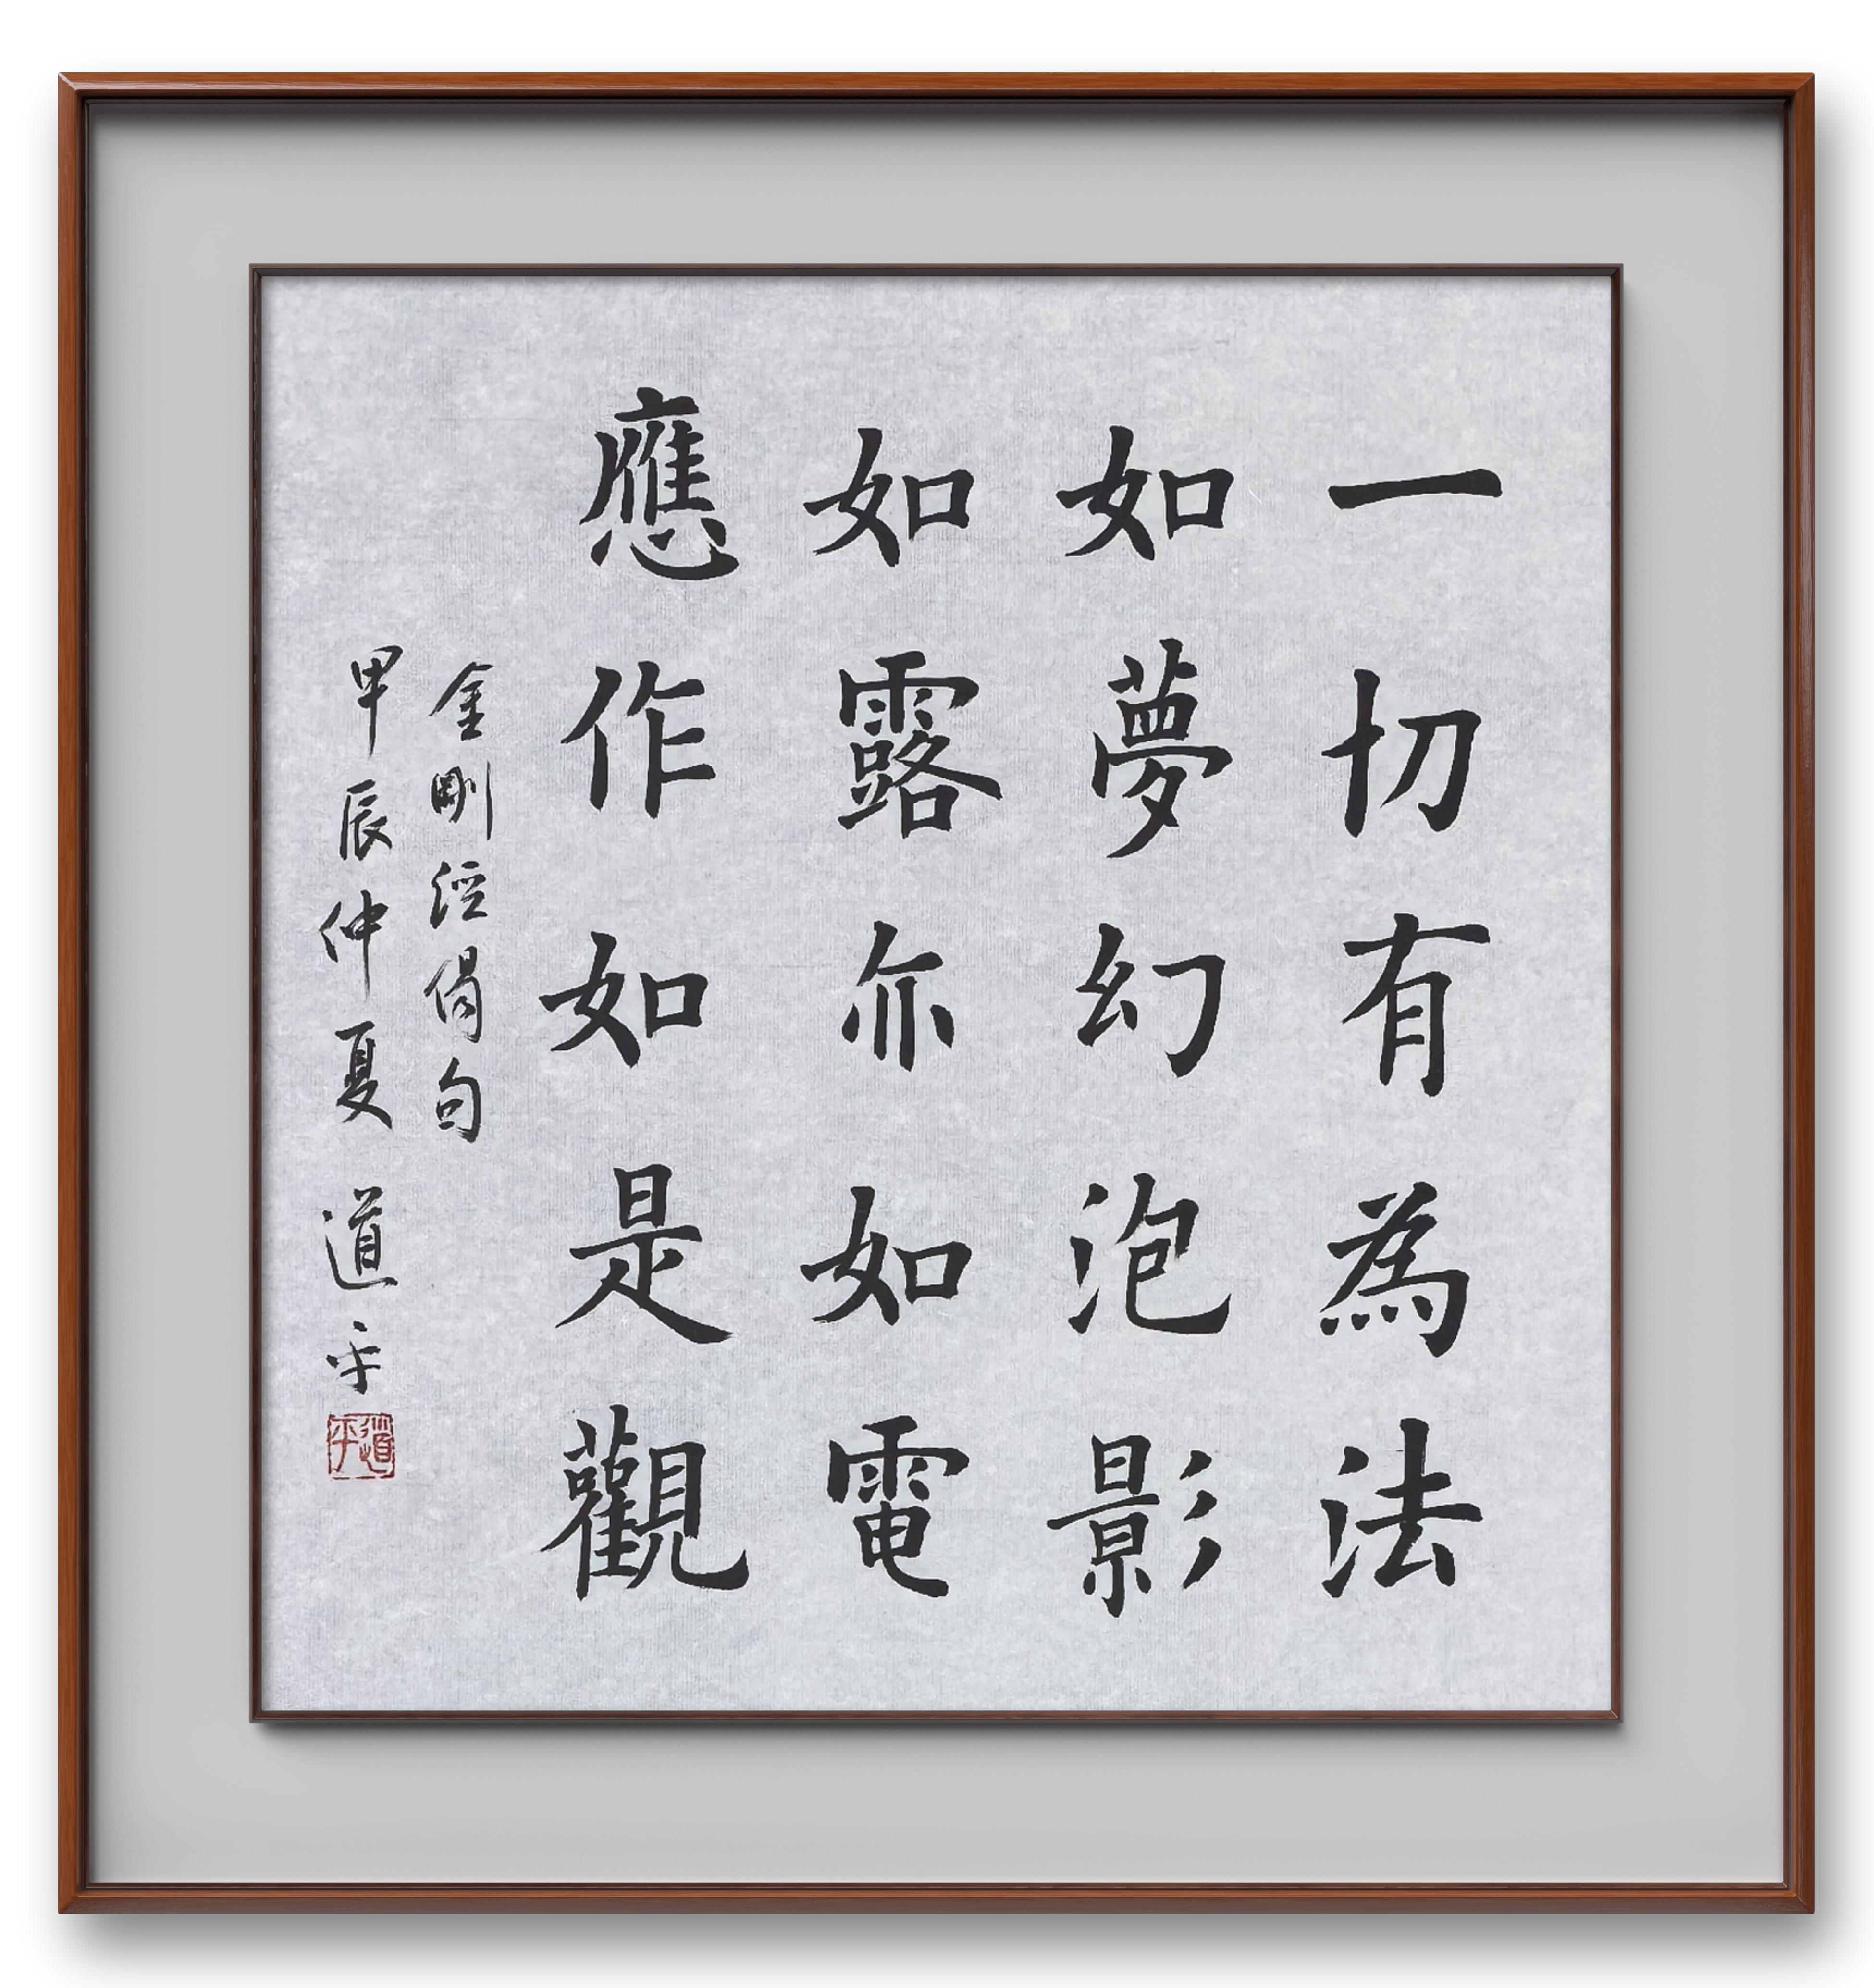 一切有為法
如夢幻泡影
如露亦如電
應作如是觀
金剛経偈句
甲辰仲夏 道平
道平